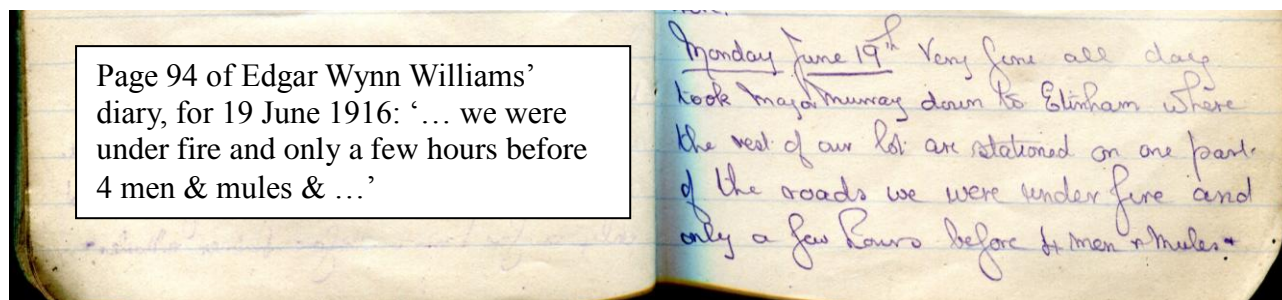 Page 94 of Edgar Wynn Williams’
diary, for 19 June 1916: ‘… we were
under fire and only a few hours before
4 men & mules & …’
Monday June 19th Very fine all day
took Major Murray down to Etinham where
the rest of our lot are stationed on one part
of the roads we were under fire and
only a few hours before 4 men & mules &